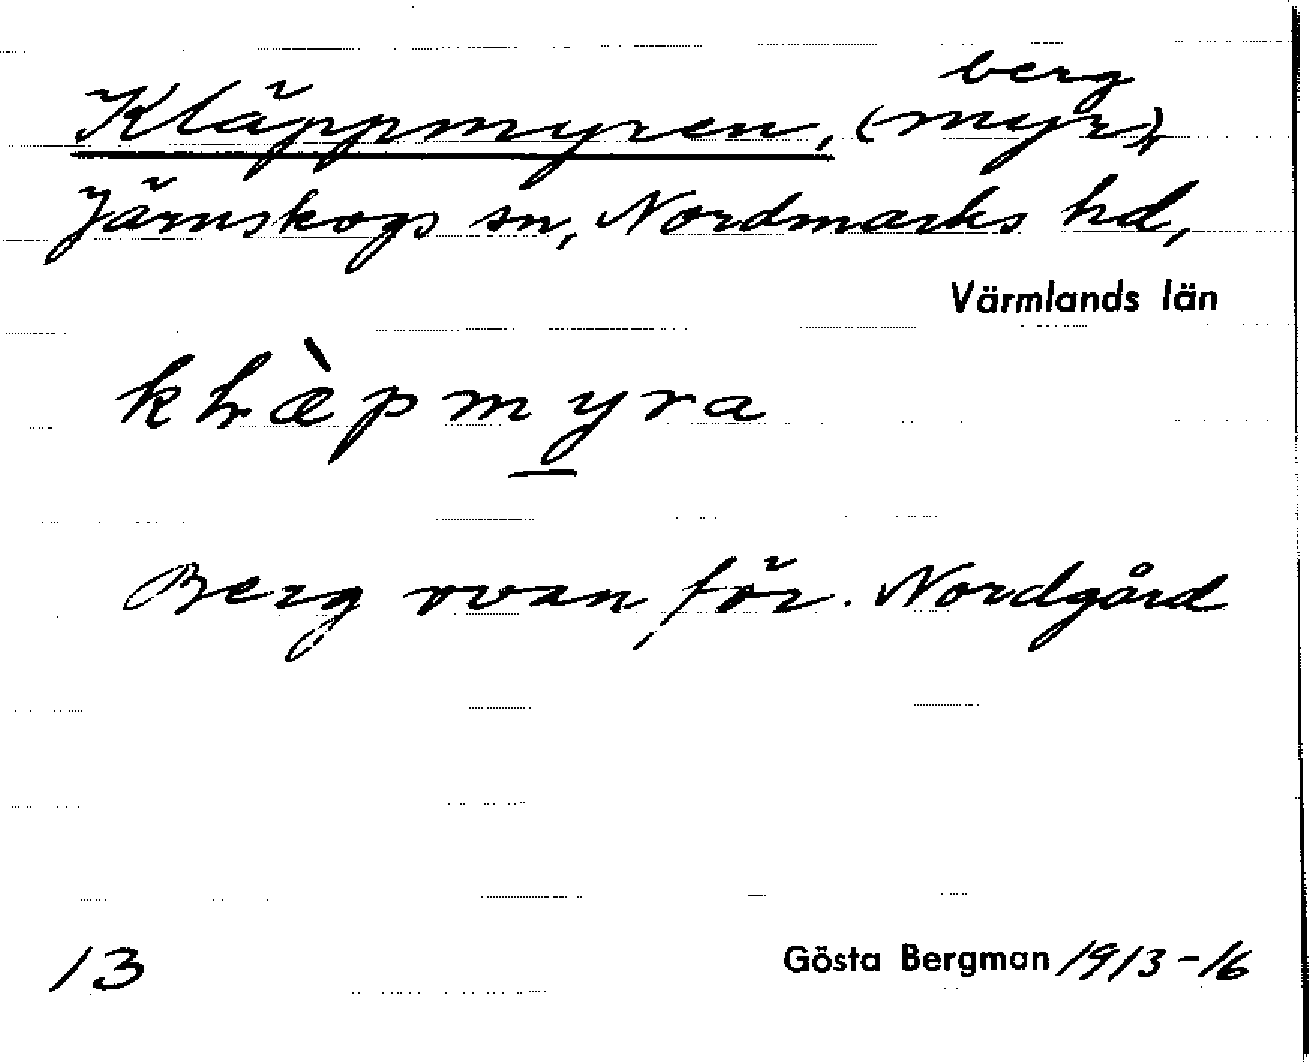 Kläppmyren, (myr), berg
Järnskogs sn, Nordmarks hd,
Värmlands län
kḷæ̀pmyra
Berg ovanför Nordgård
13
Gösta Bergman 1913-16